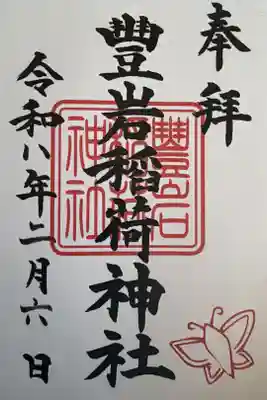 奉拝
豊岩稲荷神社
令和八年二月六日
豊岩稲荷神社